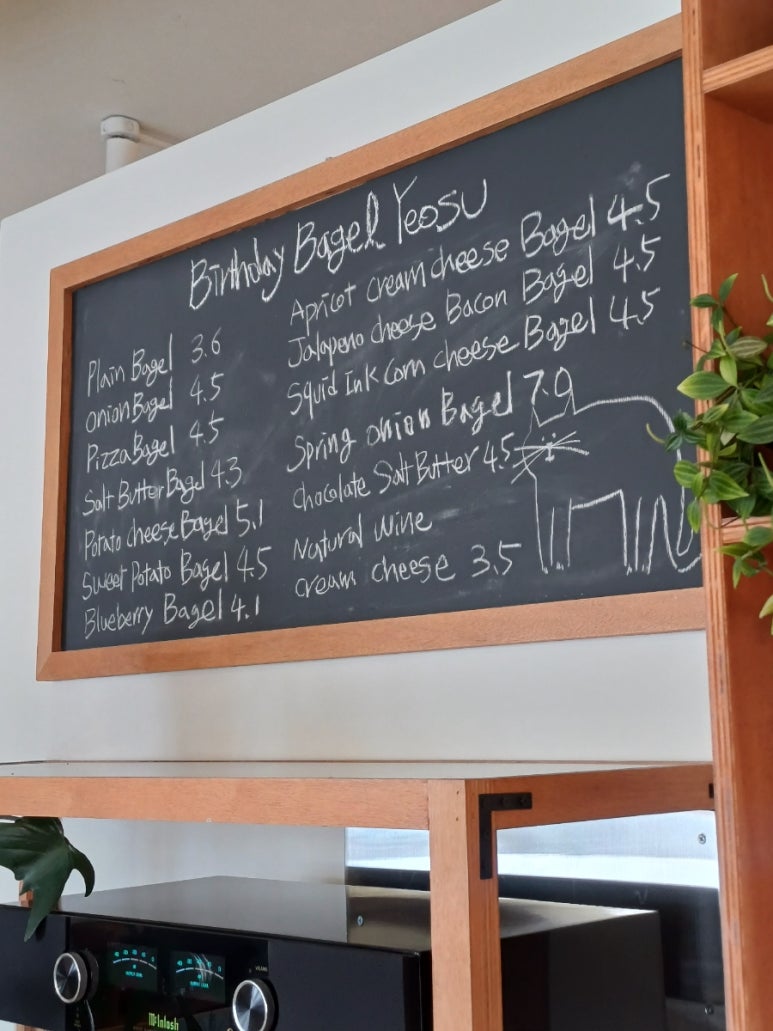 Birthday Bagel Yeosu
Plain Bagel 3.6
onion Bagel 4.5
Pizza Bagel 4.5
Salt Butter Bagel 4.3
Potato cheese Bagel 5.1
Sweet Potato Bagel 4.5
Blueberry Bagel 4.1
Apricot cream cheese Bagel 4.5
Jalapeno cheese Bacon Bagel 4.5
Squid Ink corn cheese Bagel 4.5
Spring onion Bagel 7.0
chocolate Salt Butter 4.5
Natural wine
cream cheese 3.5
McIntosh